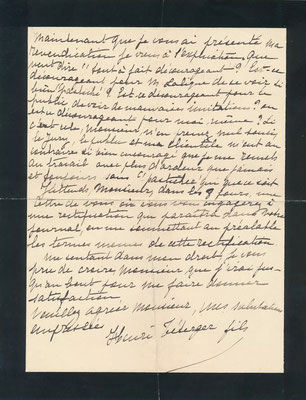 Maintenant que je vous ai présenté ma
revendication je viens à l'explication. Que
veut dire "tout à fait décourageant"? Est-ce
décourageant pour M. Lalique de se voir si
bien galvaudé? Est-ce décourageant pour le
public de voir de mauvaises imitations? ou
est-ce décourageant pour moi-même? Si
c'est cela, monsieur, n'en prenez nul souci,
le Jury, le public et ma clientèle m'ont au
contraire si bien encouragé que je me remets
au travail avec plus d'ardeur que jamais
et toujours sans
J'attends Monsieur, dans les 3 jours, une
lettre de vous où vous vous engagerez à
une rectification qui paraîtra dans votre
journal, en me soumettant au préalable
les termes mêmes de cette rectification
Me sentant dans mon droit, je vous
prie de croire Monsieur que j'irai jus-
qu'au bout pour me faire donner
satisfaction.
Veuillez agréer Monsieur, mes salutations
empressées
Henri Téterger fils